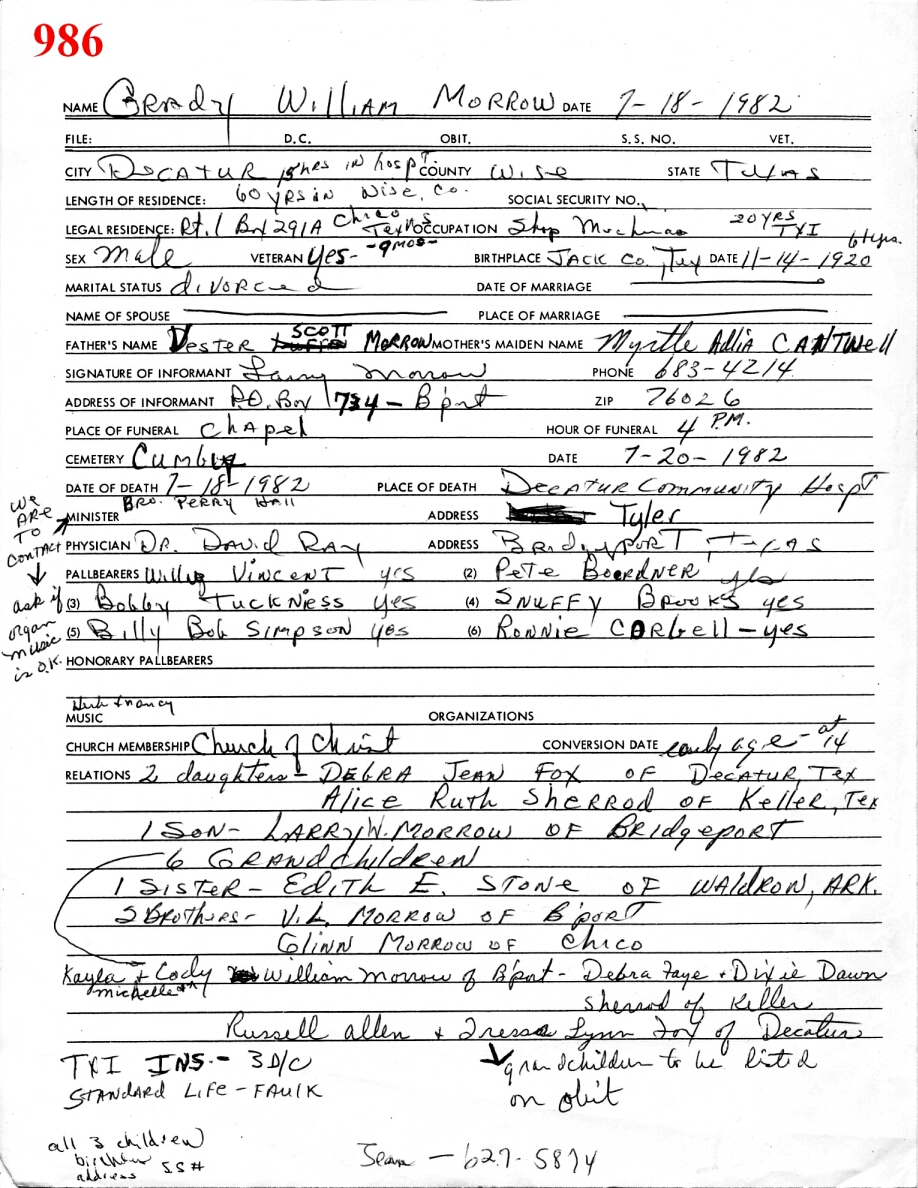 986
NAME Brady William Morrow DATE 7-18-1982
FILE: D.C. OBIT. S.S. NO. VET.
CITY Decatur hrs in hospt. COUNTY Wise STATE Texas
LENGTH OF RESIDENCE: 60 yrs in Wise. Co. SOCIAL SECURITY NO.
LEGAL RESIDENCE: Rt. 1 Box 291A Chico Texas OCCUPATION Shop 20 YRS TXI
SEX Male VETERAN Yes- -9mos- BIRTHPLACE Jack Co., Tex DATE 11-14-1920
MARITAL STATUS divorced DATE OF MARRIAGE
NAME OF SPOUSE PLACE OF MARRIAGE
FATHER'S NAME Vester SCOTT Morrow MOTHER'S MAIDEN NAME Myrtle Adlia CANTWell
SIGNATURE OF INFORMANT Larry Morrow PHONE 683-4214
ADDRESS OF INFORMANT P.O. Box 1734 - B'port ZIP 76026
PLACE OF FUNERAL Chapel HOUR OF FUNERAL 4 P.M.
CEMETERY Cumby DATE 7-20-1982
DATE OF DEATH 7-18-1982 PLACE OF DEATH Decatur Community Hospt
MINISTER Bro. Perry Hall ADDRESS Tyler
PHYSICIAN Dr. David Ray ADDRESS Bridgeport, Texas
we are to contact
ask if organ music is O.K.
PALLBEARERS Vincent yes (2) Pete Boardner yes
(3) Bobby Tuckness yes (4) Snuffy Brooks yes
(5) Billy Bob Simpson yes (6) Ronnie Corbell - yes
HONORARY PALLBEARERS
Herb & nancy
MUSIC ORGANIZATIONS
CHURCH MEMBERSHIP Church of Christ CONVERSION DATE early age - at 14
RELATIONS 2 daughters - Debra Jean Fox of Decatur, Tex
Alice Ruth Sherrod of Keller, Tex
1 Son - Larry W. Morrow of Bridgeport
6 Grandchildren
1 Sister - Edith E. Stone of Waldron, Ark.
2 Brothers - V.L. Morrow of B'port
Glinn Morrow of Chico
Kayla & Cody William Morrow of B'port - Debra Faye & Dixie Dawn
michelle
Sherrod of Keller
Russell Allen & Tressa Lynn Fox of Decatur
TXI INS. - 3 D/C grandchildren to be listed
STANDARD LIFE - FAULK on obit
all 3 children
address SS#
Jean - 627-5874